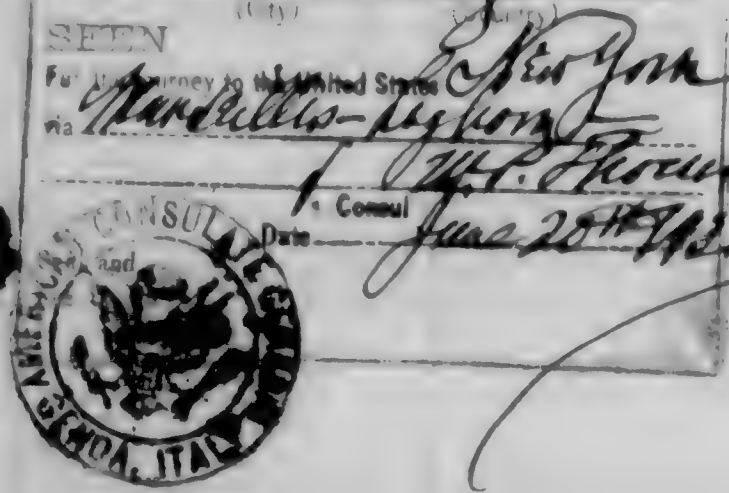 (City) (Country)
SEEN
For the journey to the United States New York
via Marseilles - Leghorn
W.P. Shoc
V. Consul
Date June 20th 192
and
AMERICAN CONSULATE GENERAL
GENOA, ITALY